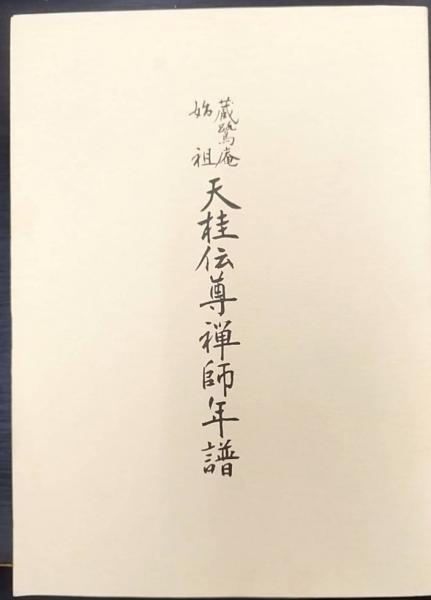 蔵鷺庵
始祖
天桂伝尊禅師年譜